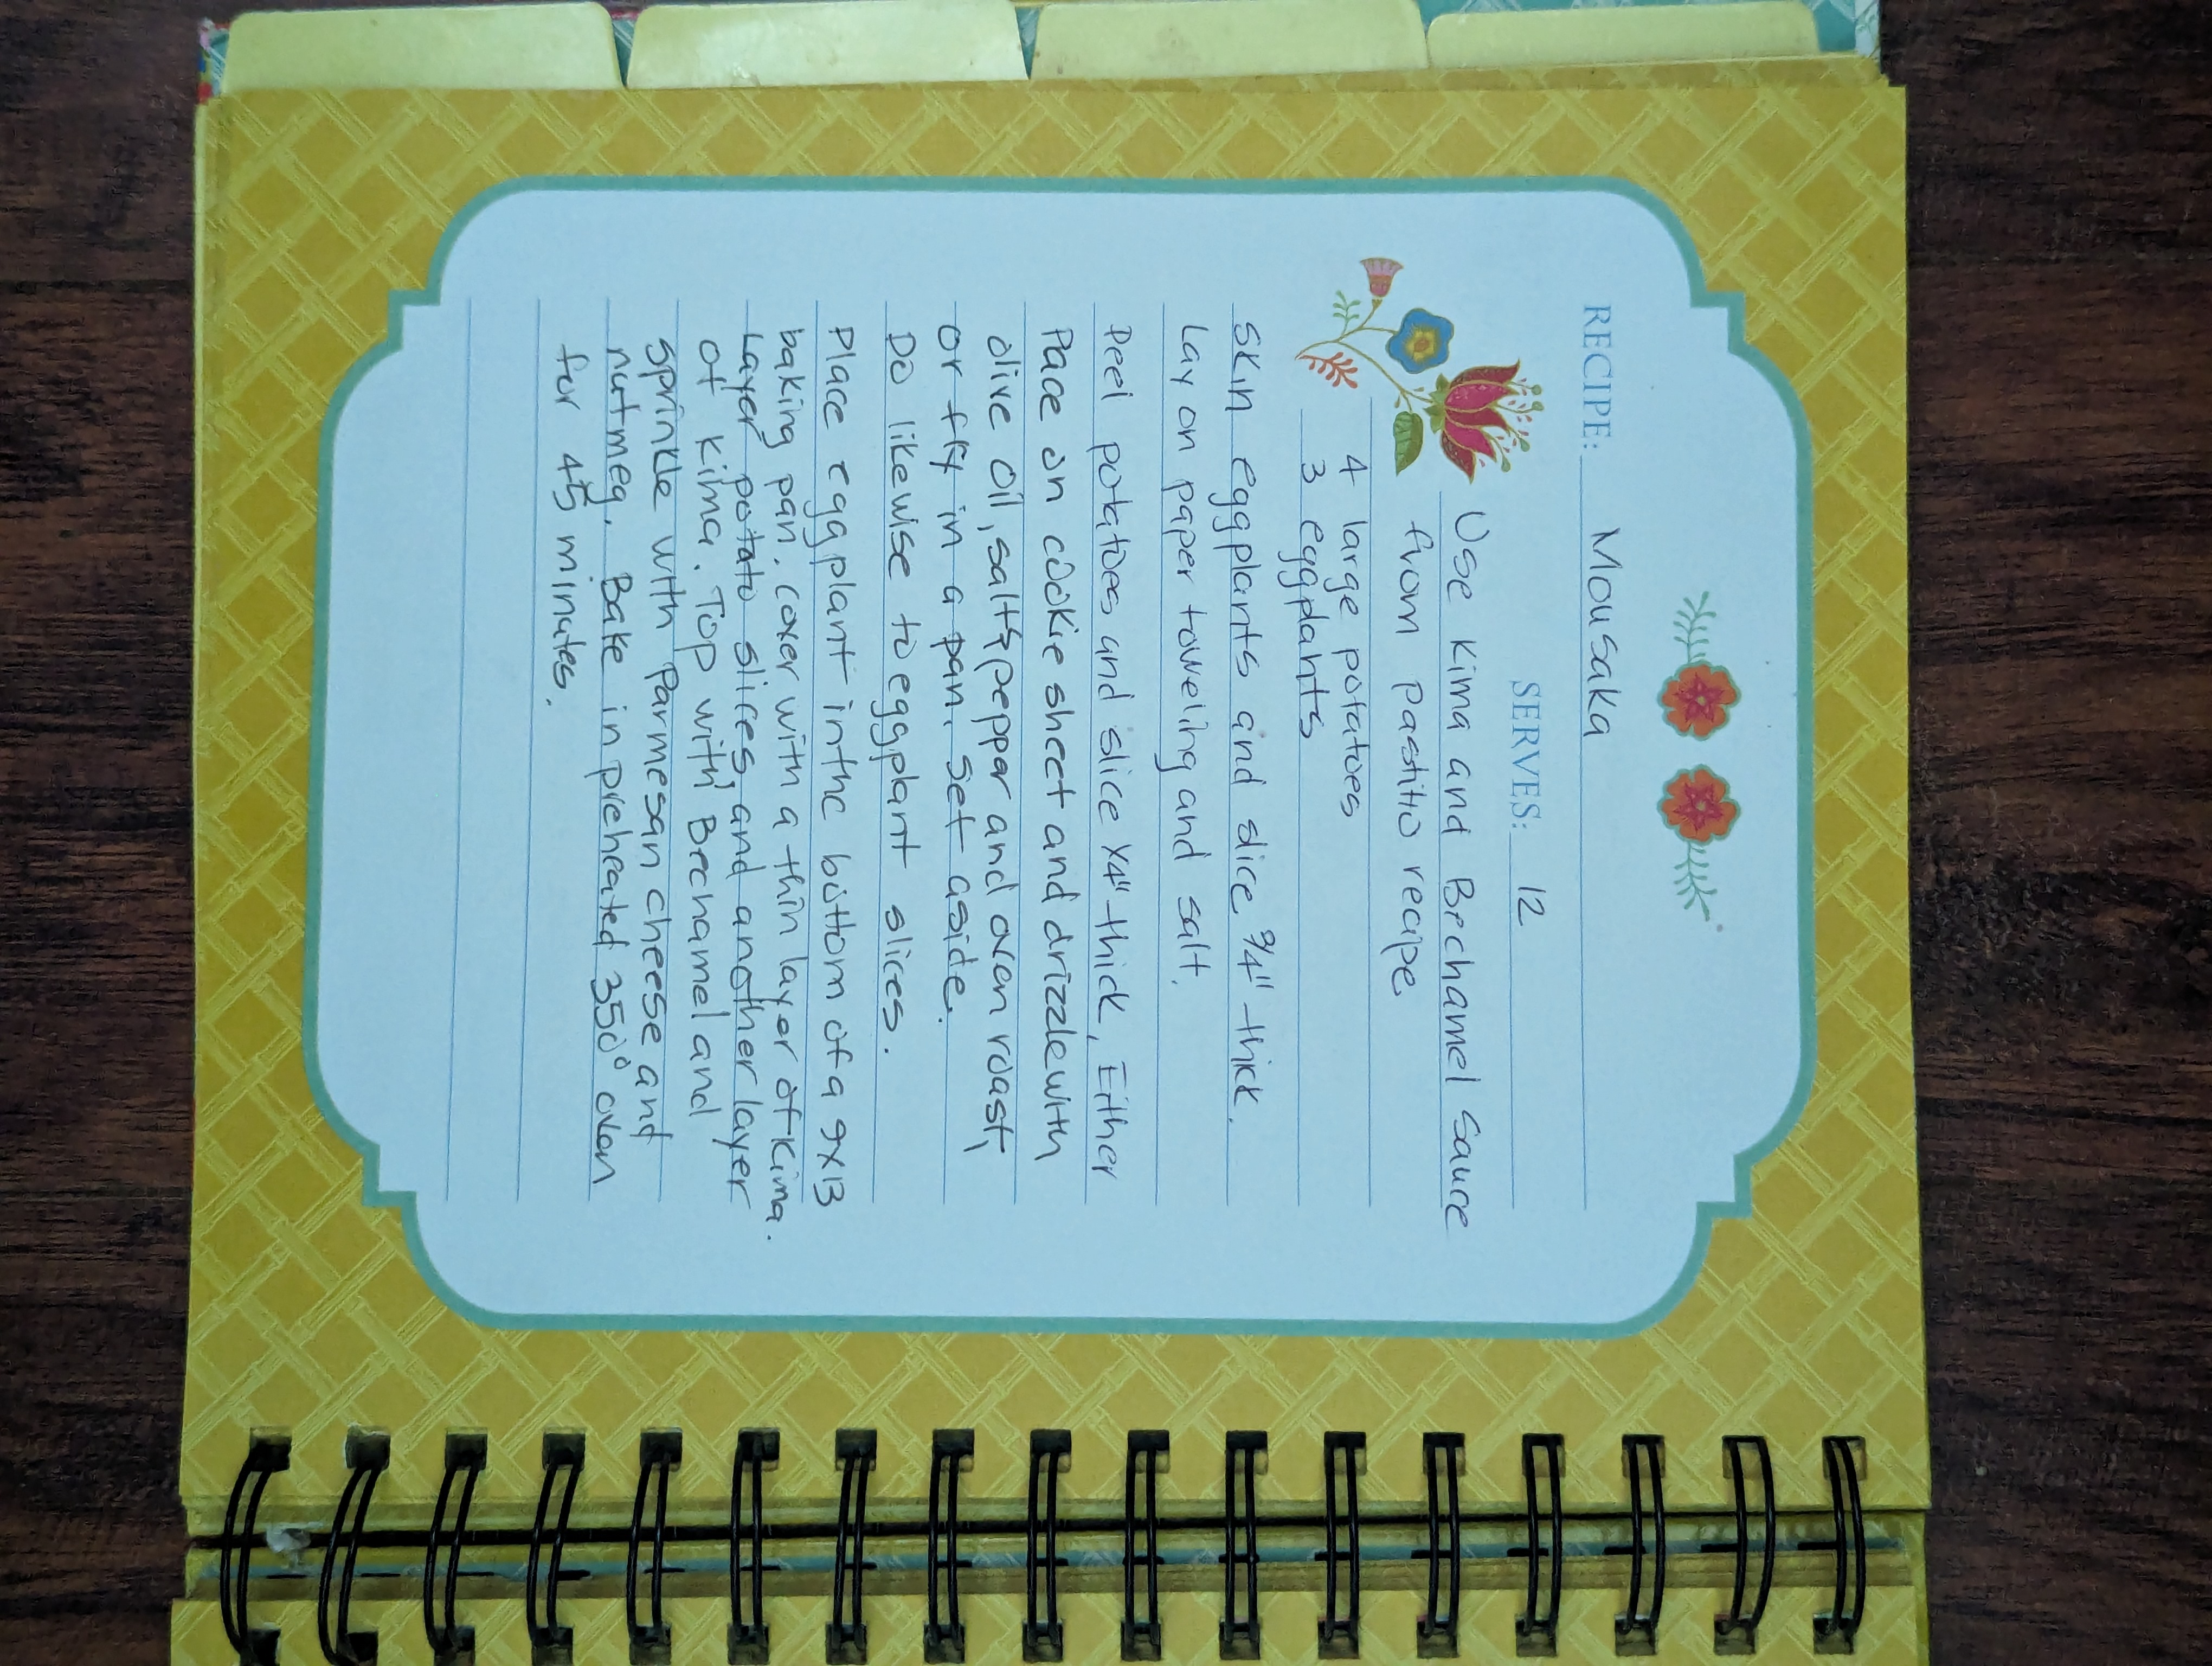 RECIPE: Mousaka
SERVES: 12
Use Kima and Bechamel Sauce
from pastitio recipe
4 large potatoes
3 eggplants
Skin eggplants and slice 3/4" thick.
Lay on paper toweling and salt.
Peel potatoes and slice 1/4" thick, Either
Pace on cookie sheet and drizzle with
olive oil, salt & pepper and oven roast,
or fry in a pan. Set aside.
Do likewise to eggplant slices.
Place eggplant in the bottom of a 9x13
baking pan. Cover with a thin layer of Kima.
Layer potato slices, and another layer
of Kima. Top with Bechamel and
sprinkle with Parmesan cheese and
nutmeg. Bake in preheated 350° oven
for 45 minutes.